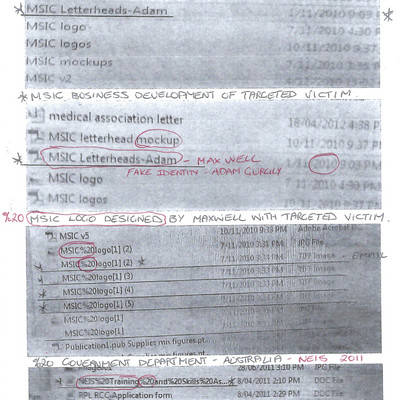 * MSIC Letterheads-Adam 1/11/2010 9:03 *
MSIC logo 7/11/2010 4:30 P
MSIC logos 10/11/2010 9:37
MSIC mockups 7/11/2010 3:31
MSIC v2
* MSIC BUSINESS DEVELOPMENT OF TARGETED VICTIM.
medical association letter 18/04/2012 4:38 P
MSIC letterhead mockup 10/11/2010 9:37
* MSIC Letterheads-Adam - MAX WELL 2010 9:03 P
FAKE IDENTITY - ADAM
MSIC logo 7/11/2010 4:30 PM
MSIC logos 10/11/2010 9:37 P
%20 MSIC LOGO DESIGNED BY MAXWELL WITH TARGETED VICTIM.
MSIC v5 10/11/2010 9:39 PM Adobe Acrobat D
MSIC%20logo[1] (2) 7/11/2010 3:31 PM JPG File
* MSIC%20logo[1] (2) * 7/11/2010 3:33 PM TIFF Image
* MSIC%20logo[1] (3) 7/11/2010 3:33 PM TIFF Image
* MSIC%20logo[1] (4)
* MSIC%20logo[1] (5)
MSIC%20logo[1]
MSIC%20logo[1]
Publication1.pub Supplies mix figures.pt...
%20 GOVERNMENT DEPARTMENT - AUSTRALIA - NEIS 2011
28/06/2011 3:10 PM JPG File
NEIS%20Training%20and%20Skills%20As... * 8/04/2011 2:10 PM DOCT File
RPL RCC Application form 8/04/2011 2:29 PM DOC File